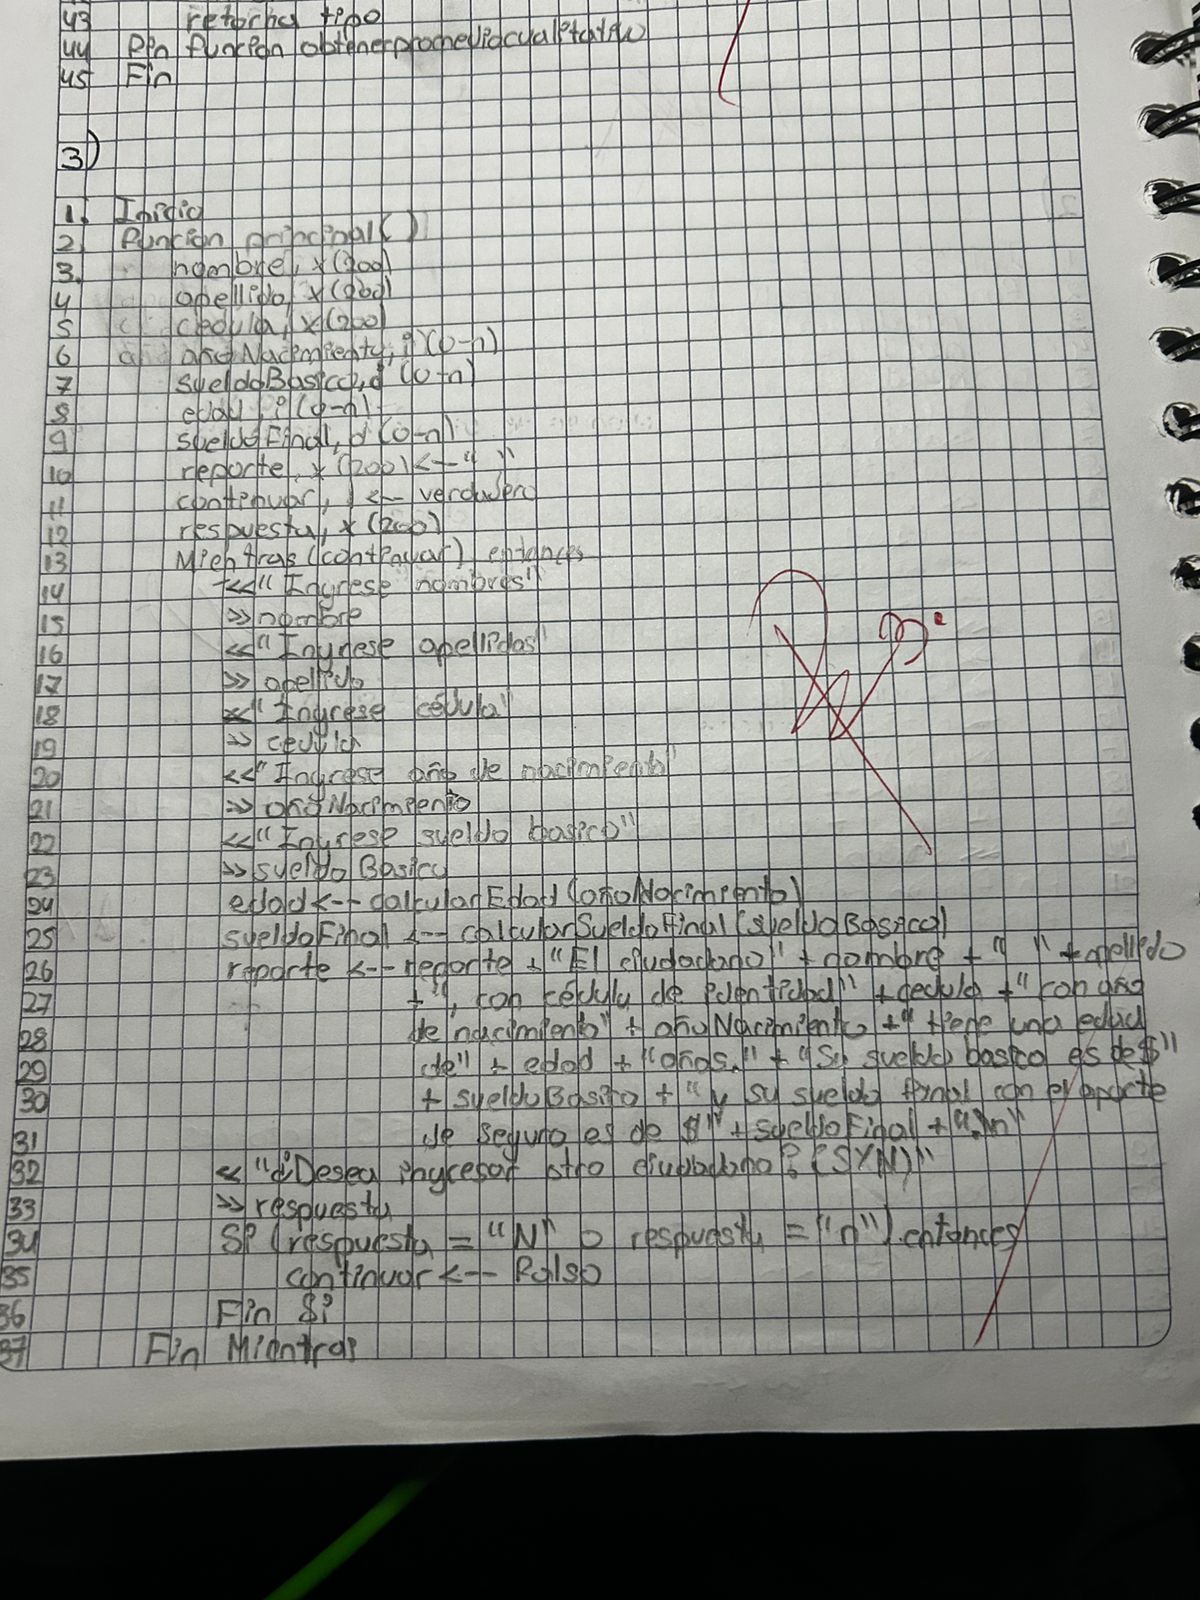 43 retorna tipo
44 Fin función obtenerpromediocualitativo
45 Fin
3)
1. Inicio
2. función principal()
3. nombre, x(200)
4 apellido, x(200)
5 cedula, x(200)
6 añoNacimiento, i(0-n)
7 sueldoBasico, d(0-n)
8 edad, i(0-n)
9 sueldoFinal, d(0-n)
10 reporte, x(200)<--" "
11 continuar, l <-- verdadero
12 respuesta, x(200)
13 Mientras(continuar) entonces
14 <<"Ingrese nombres"
15 >>nombre
16 <<"Ingrese apellidos"
17 >>apellido
18 <<"Ingrese cédula"
19 >>cedula
20 <<"Ingrese año de nacimiento"
21 >>añoNacimiento
22 <<"Ingrese sueldo basico"
23 >>sueldoBasico
24 edad<--calcularEdad(añoNacimiento)
25 sueldoFinal <-- calcularSueldoFinal(sueldoBasico)
26 reporte <-- reporte + "El ciudadano" + nombre + " " + apellido
27 +", con cédula de identidad" + cedula +"con año
28 de nacimiento" + añoNacimiento +" tiene una edad
29 de" + edad + "años." + "Su sueldo basico es de $"
30 + sueldoBasico + "y su sueldo final con el aporte
31 de seguro es de $" + sueldoFinal + ".\n"
32 << "¿Desea ingresar otro ciudadano? (S/N)"
33 >>respuesta
34 Si (respuesta = "N" o respuesta = "n") entonces
35 continuar <-- Falso
36 Fin Si
37 Fin Mientras